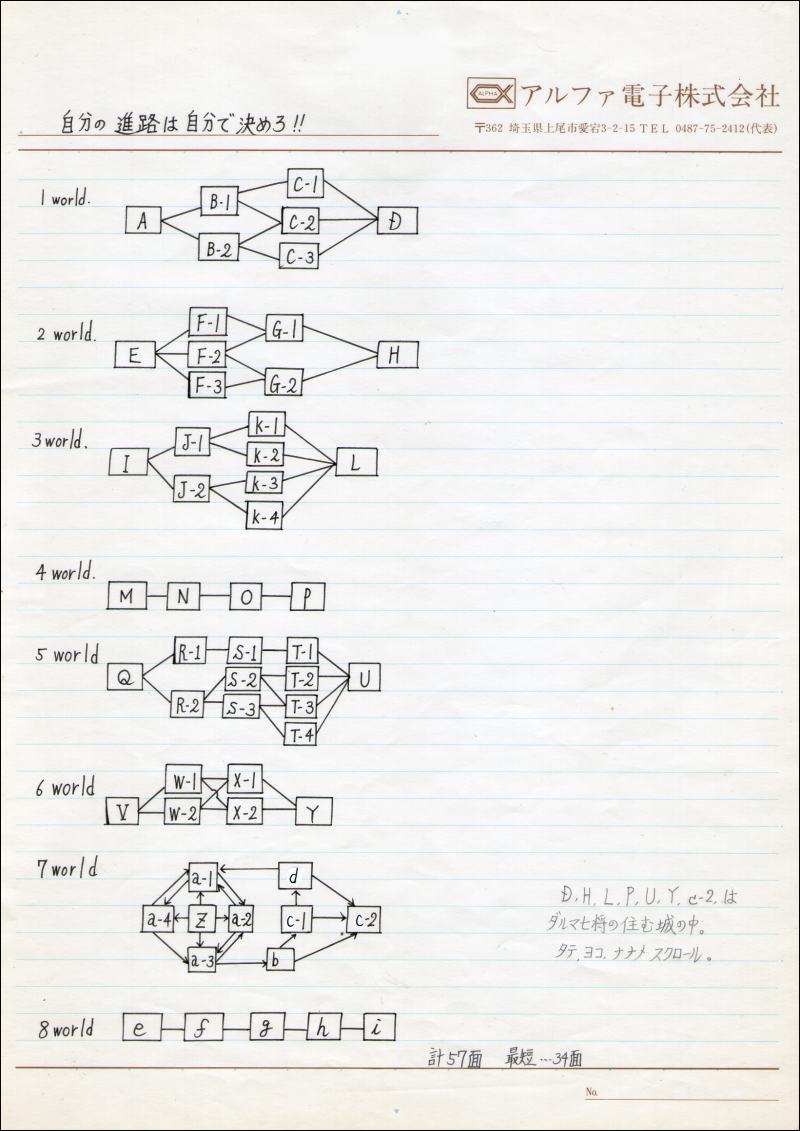 ALPHA アルファ電子株式会社
自分の進路は自分で決めろ!!
〒362 埼玉県上尾市愛宕3-2-15 TEL 0487-75-2412(代表)
1 world.
A B-1 B-2 C-1 C-2 C-3 D
2 world.
E F-1 F-2 F-3 G-1 G-2 H
3 world.
I J-1 J-2 k-1 k-2 k-3 k-4 L
4 world.
M N O P
5 world
Q R-1 R-2 S-1 S-2 S-3 T-1 T-2 T-3 T-4 U
6 world
V W-1 W-2 X-1 X-2 Y
7 world
Z a-1 a-2 a-3 a-4 b c-1 d c-2
D, H, L, P, U, Y, c-2, は
ダルマ七将の住む城の中。
タテ, ヨコ, ナナメ スクロール。
8 world
e f g h i
計57面 最短…34面
No.